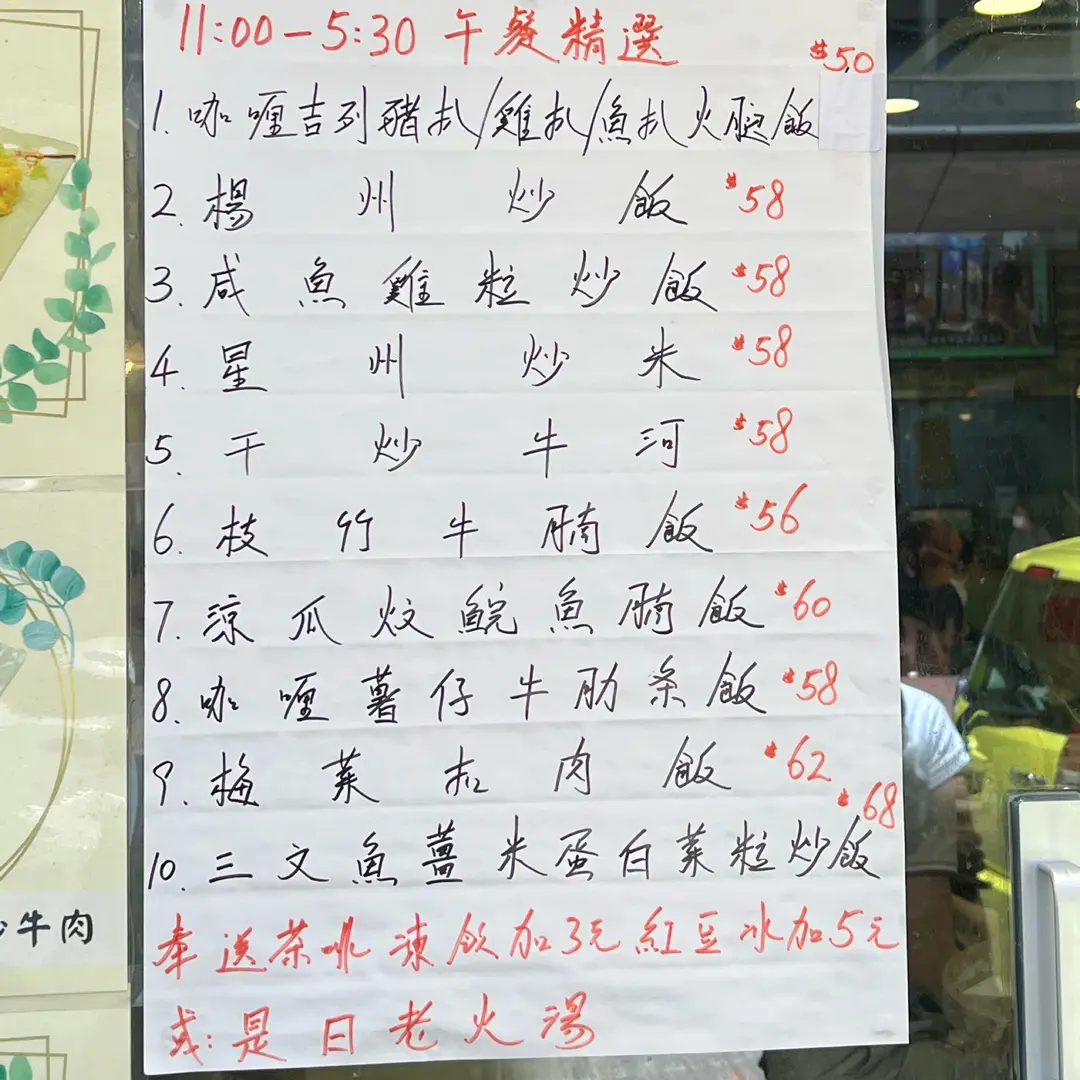 11:00-5:30 午餐精選
1. 咖喱吉列豬扒/雞扒/魚扒火腿飯 $50
2. 楊州炒飯 $58
3. 咸魚雞粒炒飯 $58
4. 星州炒米 $58
5. 干炒牛河 $58
6. 枝竹牛腩飯 $56
7. 涼瓜炆鯇魚腩飯 $60
8. 咖喱薯仔牛肋条飯 $58
9. 梅菜扣肉飯 $62
10. 三文魚薑米蛋白菜粒炒飯 $68
奉送茶啡凍飲加3元紅豆冰加5元
或:是日老火湯
牛肉